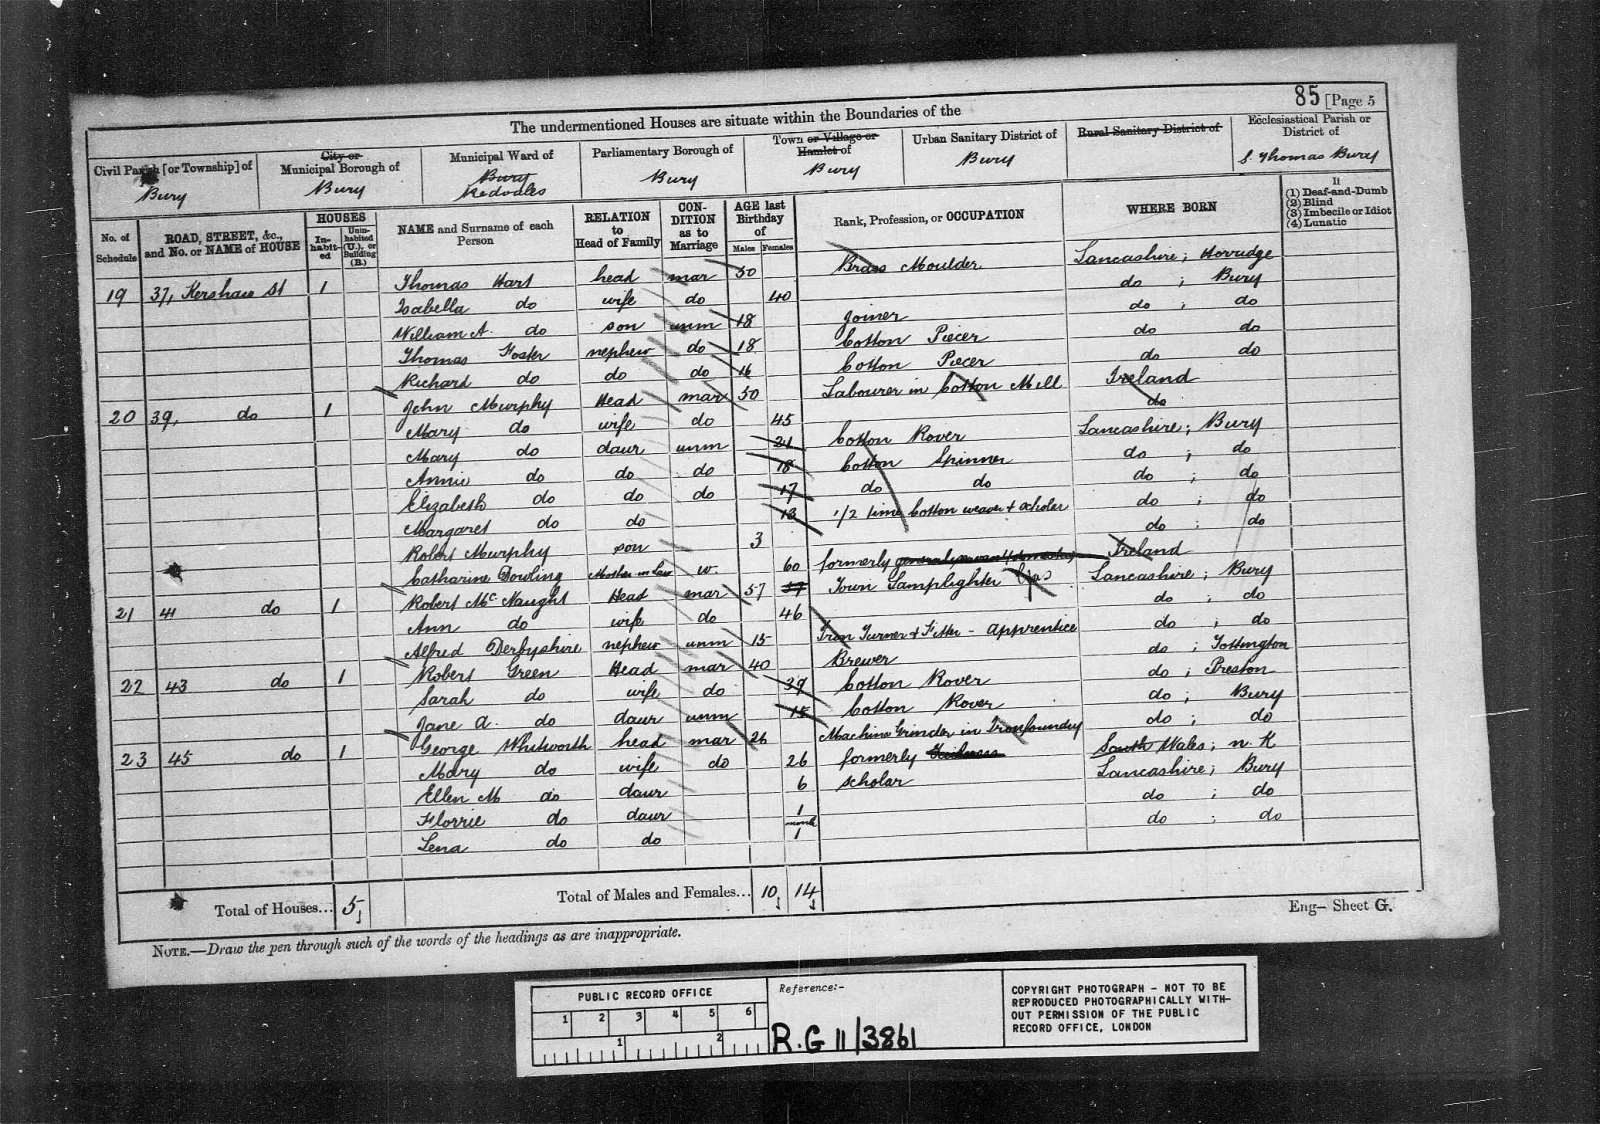 85 [Page 5
The undermentioned Houses are situate within the Boundaries of the
Civil Parish [or Township] of
City or Municipal Borough of
Municipal Ward of
Parliamentary Borough of
Town or Village or Hamlet of
Urban Sanitary District of
Rural Sanitary District of
Ecclesiastical Parish or District of
Bury Bury Bury Redvales Bury Bury Bury S. Thomas Bury
No. of Schedule
ROAD, STREET, &c., and No. or NAME of HOUSE
HOUSES
In-habit-ed
Unin-habited (U.), or Building (B.)
NAME and Surname of each Person
RELATION to Head of Family
CON-DITION as to Marriage
AGE last Birthday of
Males Females
Rank, Profession, or OCCUPATION
WHERE BORN
If
(1) Deaf-and-Dumb
(2) Blind
(3) Imbecile or Idiot
(4) Lunatic
19 37, Kershaw St 1 Thomas Hart head mar 50 Brass Moulder Lancashire; Horridge
Isabella do wife do 40 do ; Bury
William A. do son unm 18 Joiner do ; do
Thomas Foster nephew do 18 Cotton Piecer do do
Richard do do do 16 Cotton Piecer do do
20 39, do 1 John Murphy Head mar 50 Labourer in Cotton Mill Ireland
Mary do wife do 45 do
Mary do daur unm 21 Cotton Rover Lancashire; Bury
Annie do do do 18 Cotton Spinner do ; do
Elizabeth do do do 17 do do do ; do
Margaret do do 13 1/2 time Cotton weaver & scholar do ; do
Robert Murphy son 3 do ; do
Catharine Dowling Mother in Law w. 60 formerly Ireland
21 41 do 1 Robert Mc Naught Head mar 57 57 Town Lamplighter (Gas) Lancashire; Bury
Ann do wife do 46 do ; do
Alfred Derbyshire nephew unm 15 Iron Turner & Fitter - apprentice do ; do
22 43 do 1 Robert Green Head mar 40 Brewer do ; Tottington
Sarah do wife do 39 Cotton Rover do ; Preston
Jane A. do daur unm 15 Cotton Rover do ; Bury
23 45 do 1 George Whitworth head mar 26 Machine Grinder in Ironfoundry do ; do
Mary do wife do 26 formerly South Wales; n. K
Ellen M do daur 6 scholar Lancashire; Bury
Florrie do daur 1 do ; do
Lena do do month 1 do ; do
Total of Houses... 5
Total of Males and Females... 10 14
Eng— Sheet G.
NOTE.—Draw the pen through such of the words of the headings as are inappropriate.
PUBLIC RECORD OFFICE
1 2 3 4 5 6
1 2
Reference:-
R.G 11/3861
COPYRIGHT PHOTOGRAPH - NOT TO BE
REPRODUCED PHOTOGRAPHICALLY WITH-
OUT PERMISSION OF THE PUBLIC
RECORD OFFICE, LONDON